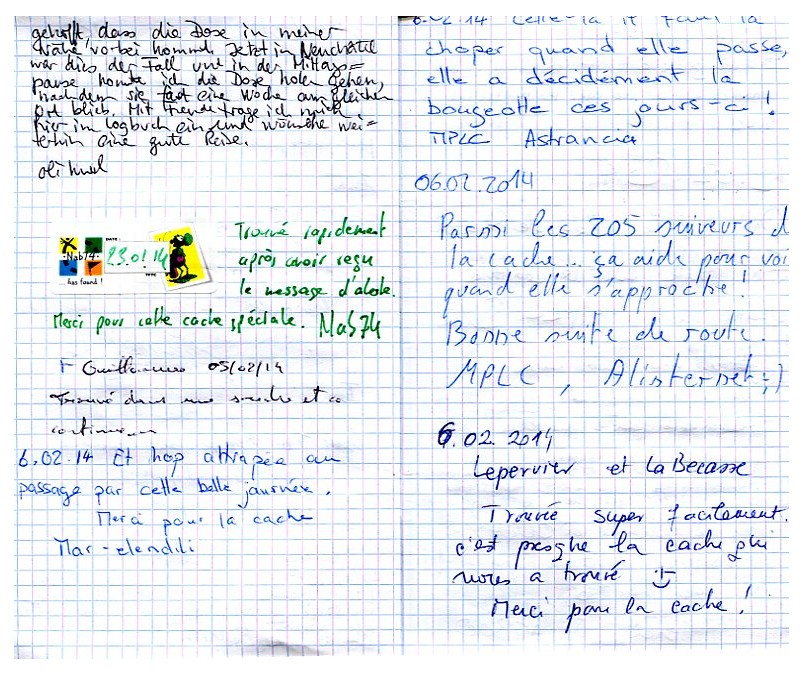 gehofft, dass die Dose in meiner
Nähe vorbei kommt. Jetzt in Neuchâtel
war dies der Fall und in der Mittags=
pause konnte ich die Dose holen gehen,
nachdem sie fast eine Woche am gleichen
Ort blieb. Mit Freude trage ich mich
hier im Logbuch ein und wünsche wei=
terhin eine gute Reise.
DATE:
Nab74
23.01.14
has found!
Trouvé rapidement
après avoir reçu
le message d'alerte.
Merci pour cette cache spéciale. Nab74
05/02/14
Trouvé dans une et ça
6.02.14 Et hop attrapée au
passage par cette belle journée.
Merci pour la cache
Mar-elendili
6.02.14 Celle-là il faut la
choper quand elle passe,
elle a décidément la
bougeotte ces jours-ci !
MPLC Astrancia
06.02.2014
Parmi les 205 suiveurs d
la cache... ça aide pour voi
quand elle s'approche!
Bonne suite de route.
MPLC, Alinternet ;-)
6.02.2014
Lepervier et laBecasse
Trouvée super facilement.
c'est presque la cache qui
nous a trouvé :-)
Merci pour la cache!